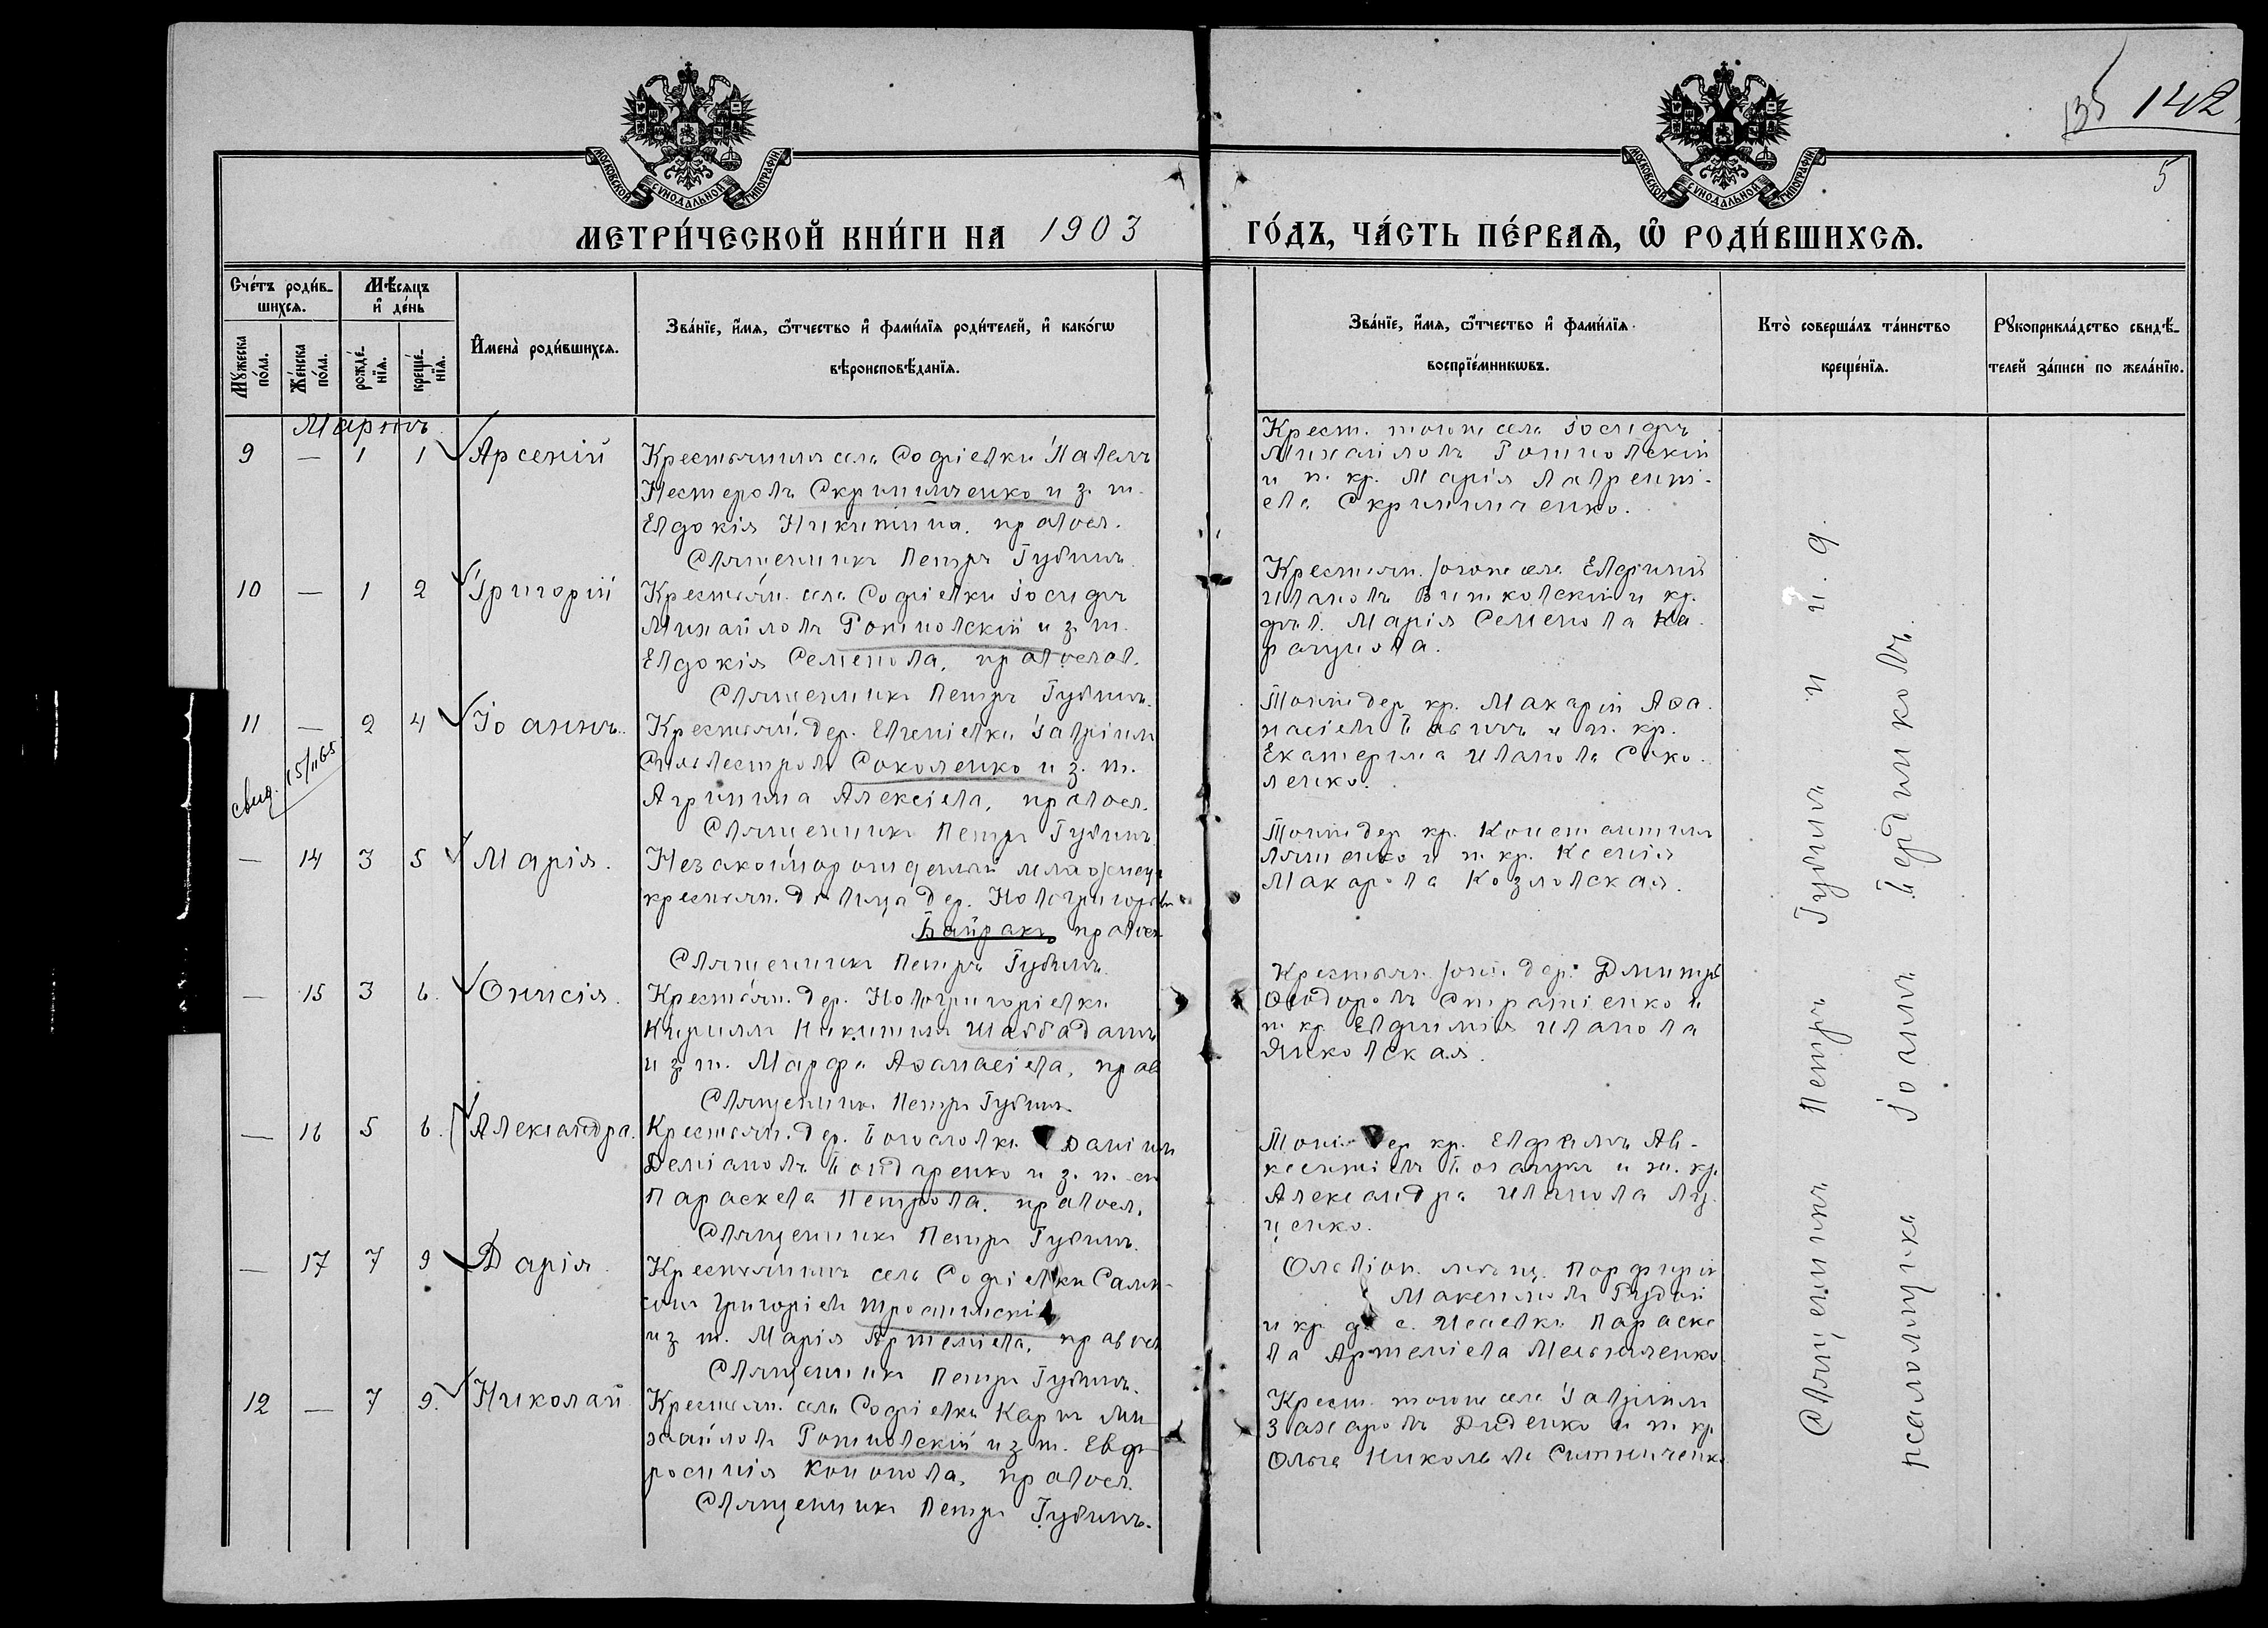 135 142
5
МОСКОВСКОЙ СѴНОДАЛЬНОЙ ТИПОГРАФІИ
МОСКОВСКОЙ СѴНОДАЛЬНОЙ ТИПОГРАФІИ
МЕТРИ́ЧЕСКОЙ КНИ́ГИ НА 1903 ГО́ДЪ, ЧА́СТЬ ПЕ́РВАѦ, Ѡ РОДИ́ВШИХСѦ.
Сче́тъ роди́в-
шихсѧ.
Мѣ́сѧцъ
и҆ де́нь
Мꙋ́жеска по́ла.
Же́нска по́ла.
рожде́-нїѧ.
креще́-нїѧ.
И҆мена̀ роди́вшихсѧ.
Зва́нїе, и҆́мѧ, ѻ҆́тчество и҆ фами́лїѧ роди́телей, и҆ како́гѡ
вѣроисповѣ́данїѧ.
Зва́нїе, и҆́мѧ, ѻ҆́тчество и҆ фами́лїѧ
воспрїе́мникѡвъ.
Кто̀ соверша́лъ та́инство
креще́нїѧ.
Рꙋкоприкла́дство свидѣ́-
телей за́писи по жела́нїю.
Мартъ
9 — 1 1 Арсеній
Крестьянинъ села Софіевки Павелъ
Нестеровъ Скрипниченко и з. ж.
Евдокія Никитина, правосл.
Священникъ Петръ Губинъ.
Крест. того же села Іосифъ
Михайловъ Готновскій
и ж. кр. Марія Лаврентi-
ева Скрипниченко.
10 — 1 2 Григорій
Крестьян. села Софіевки Іосифъ
Михайловъ Готновскій и з. ж.
Евдокія Семенова, православ.
Священникъ Петръ Губинъ.
Крестьян. того же села Евфимій
Ивановъ Витковскій и кр.
дѣв. Марія Семенова Ка-
рацюва.
11 — 2 4 Іоаннъ.
свид. 15/II 65
Крестьян. дер. Евгеніевки Гавріилъ
Сильвестровъ Соколенко и з. ж.
Агрипина Алексіева, правосл.
Священникъ Петръ Губинъ
Той же дер. кр. Макарій Аѳа-
насіевъ и ж. кр.
Екатерина Иванова Соко-
ленко.
— 14 3 5 Марія.
Незаконнорожденный младенец
крестьян. дѣвица дер. Новогригорьев
Байракъ, правосл
Священникъ Петръ Губинъ.
Той же дер. кр. Константинъ
Ляшенко и ж. кр. Ксенія
Макарова Козловская.
— 15 3 6. Онисія.
Крестьян. дер. Новогригоріевки
Кириллъ Никитинъ Шаббаданъ
и з. ж. Марфа Аѳанасіева, прав
Священникъ Петръ Губинъ.
Крестьян. той же дер. Дмитрій
Ѳеодоровъ Стратіенко и
ж. кр. Евфимія Иванова
Янковская.
— 16 5 6. Александра.
Крестьян. дер. Богословки Даніилъ
Деміановъ Бондаренко и з. ж.
Параскева Петрова, правосл.
Священникъ Петръ Губинъ.
Той же дер. кр. Евфимъ Ав-
ксентіевъ и ж. кр.
Александра Иванова Лу-
ценко.
— 17 7 9 Дарія.
Крестьянинъ села Софіевки Самп-
сонъ Григоріевъ
и з. ж. Марія Артеміева, правосл
Священникъ Петръ Губинъ.
мѣщ. Порфирій
Максимовъ Гудый
и кр. дѣв. с. Параске-
ва Артеміева Мельниченко.
12 — 7 9. Николай
Крестьян. села Софіевки Карпъ Ми-
хайловъ Готновскій и з. ж. Евф-
росинія Кононова, правосл.
Священникъ Петръ Губинъ.
Крест. того же села Гавріилъ
Захаровъ Диденко и ж. кр.
Ольга Николаева Ситниченко
Священникъ Петръ Губинъ и и. д.
псаломщика Іоаннъ Бердниковъ.